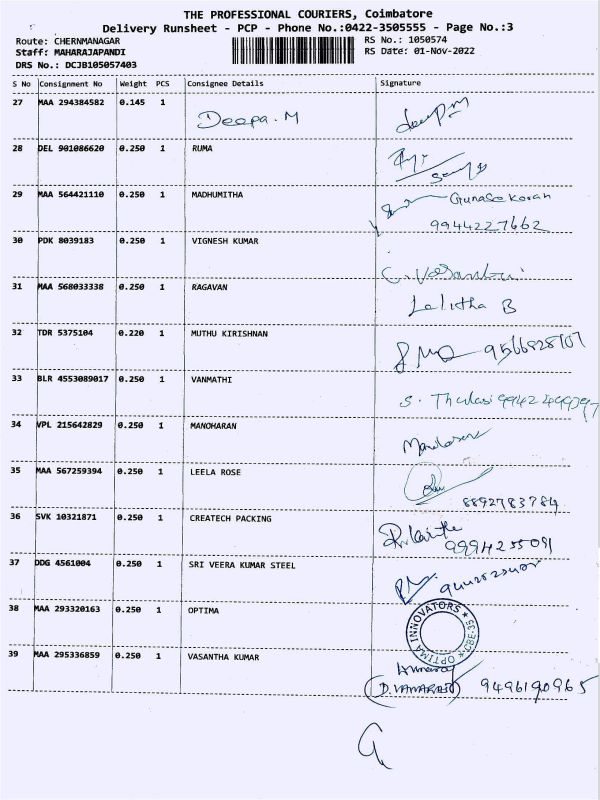 THE PROFESSIONAL COURIERS, Coimbatore
Delivery Runsheet - PCP - Phone No.:0422-3505555 - Page No.:3
Route: CHERNMANAGAR RS No.: 1050574
Staff: MAHARAJAPANDI RS Date: 01-Nov-2022
DRS No.: DCJB105057403
S No Consignment No Weight PCS Consignee Details Signature
27 MAA 294384582 0.145 1 Deepa.M
28 DEL 901086620 0.250 1 RUMA
29 MAA 564421110 0.250 1 MADHUMITHA Gunasekaran
9944227662
30 PDK 8039183 0.250 1 VIGNESH KUMAR
31 MAA 568033338 0.250 1 RAGAVAN
Lalitha B
32 TDR 5375104 0.220 1 MUTHU KIRISHNAN
33 BLR 4553089017 0.250 1 VANMATHI
S. Thulasi
34 VPL 215642829 0.250 1 MANOHARAN
35 MAA 567259394 0.250 1 LEELA ROSE
8892783784
36 SVK 10321871 0.250 1 CREATECH PACKING
9994255091
37 DDG 4561004 0.250 1 SRI VEERA KUMAR STEEL
38 MAA 293320163 0.250 1 OPTIMA
OPTIMA INNOVATORS * CBE-35 *
39 MAA 295336859 0.250 1 VASANTHA KUMAR
9496190965